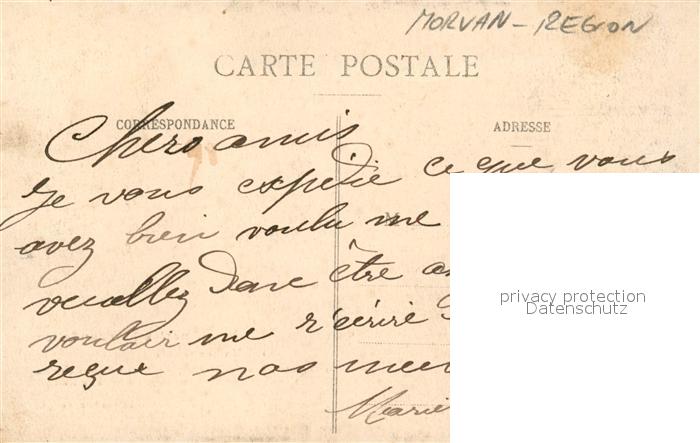 MORVAN - REGION
CARTE POSTALE
CORRESPONDANCE
ADRESSE
Chers amis
Je vous expedie ce que vous
avez bien voulu me
veuillez donc être
vouloir me r'écrire
reçue nos
Marie
privacy protection
Datenschutz